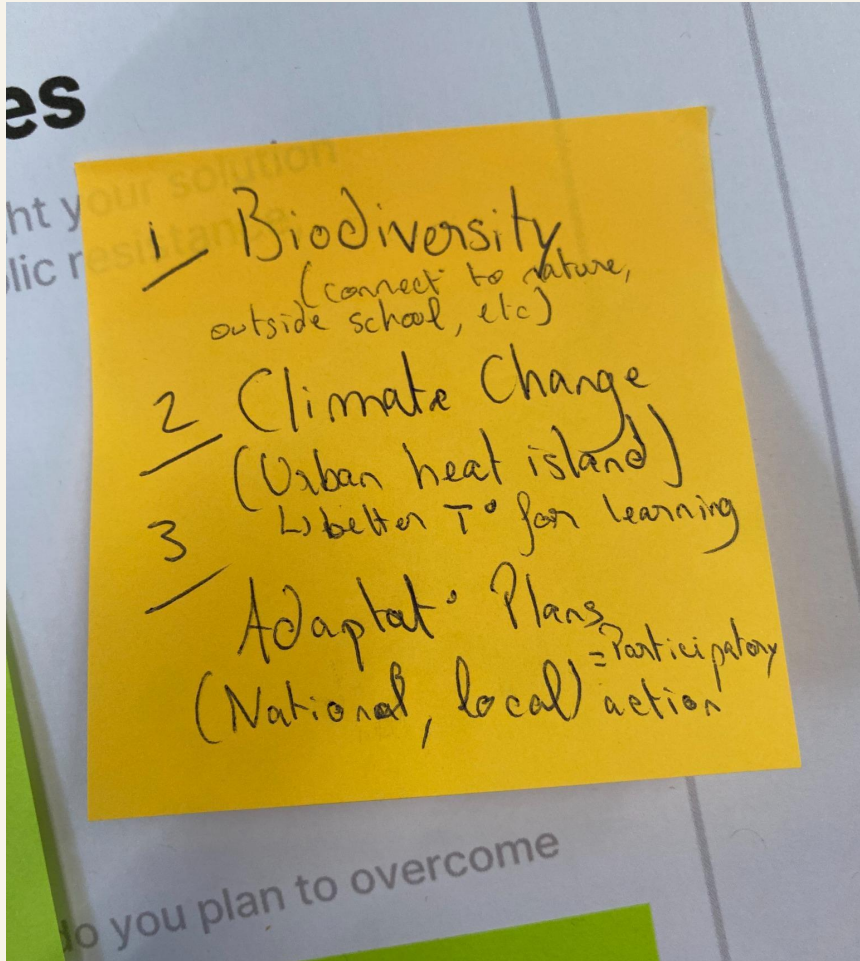 es
ht your solution
lic resistance
1 Biodiversity
(connect to nature,
outside school, etc)
2 Climate Change
(Urban heat island)
↳ better T° for learning
3
Adaptat° Plans
= Participatory
(National, local) action
do you plan to overcome